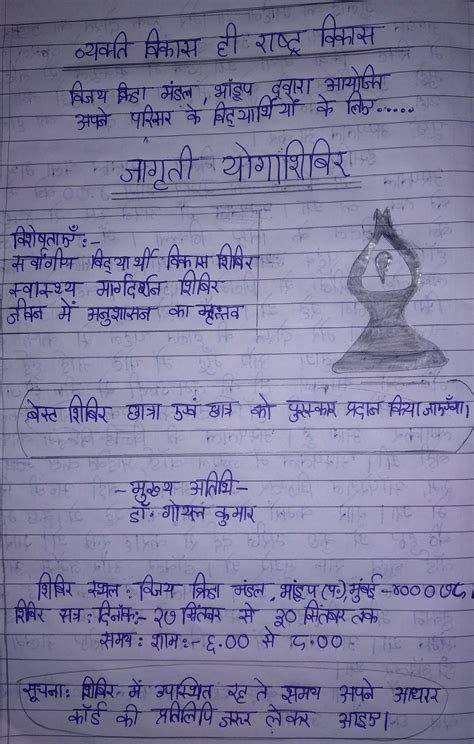 व्यक्ती विकास ही राष्ट्र विकास
विजय क्रिडा मंडल, भांडूप द्वारा आयोजित
अपने परिसर के विद्यार्थियों के लिए.....
जागृती योगाशिबिर
विशेषताएँ :-
सर्वांगीय विद्यार्थी विकास शिबिर
स्वास्थ्य मार्गदर्शन शिबिर
जीवन में अनुशासन का महत्तव
बेस्ट शिबिर छात्रा एवं छात्र को पुरस्कार प्रदान किया जाएगा।
-मुख्य अतिथि:-
डॉ. गोयल कुमार
शिबिर स्थल : विजय क्रिडा मंडल, भांडूप (प.), मुंबई -४०००७८
शिबिर सत्र : दिनांक:- २७ सितंबर से ३० सितंबर तक
समय: शाम:- ६.०० से ८.००
सूचना: शिबिर में उपस्थित रहते समय अपने आधार
कॉर्ड की प्रतिलिपि जरुर लेकर आइए।